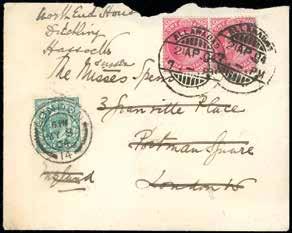 North End House
Ditchling
Hassocks
Sussex
The Misses Spens
3 Granville Place
Portman Square
London W
England
21 AP 04
LONDON
14